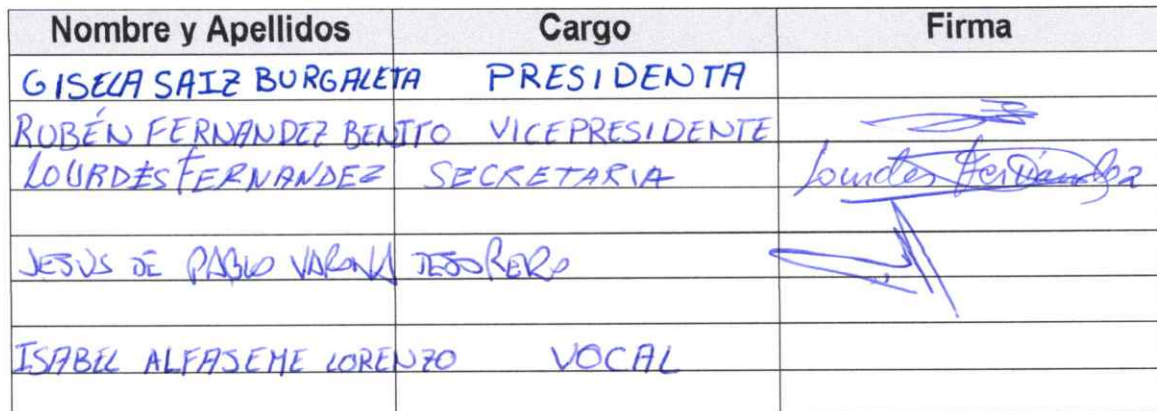 Nombre y Apellidos Cargo Firma
GISELA SAIZ BURGALETA PRESIDENTA
RUBÉN FERNÁNDEZ BENITO VICEPRESIDENTE
LOURDES FERNANDEZ SECRETARIA Lourdes Fernández
JESUS DE PABLO VARONA TESORERO
ISABEL ALFAGEME LORENZO VOCAL